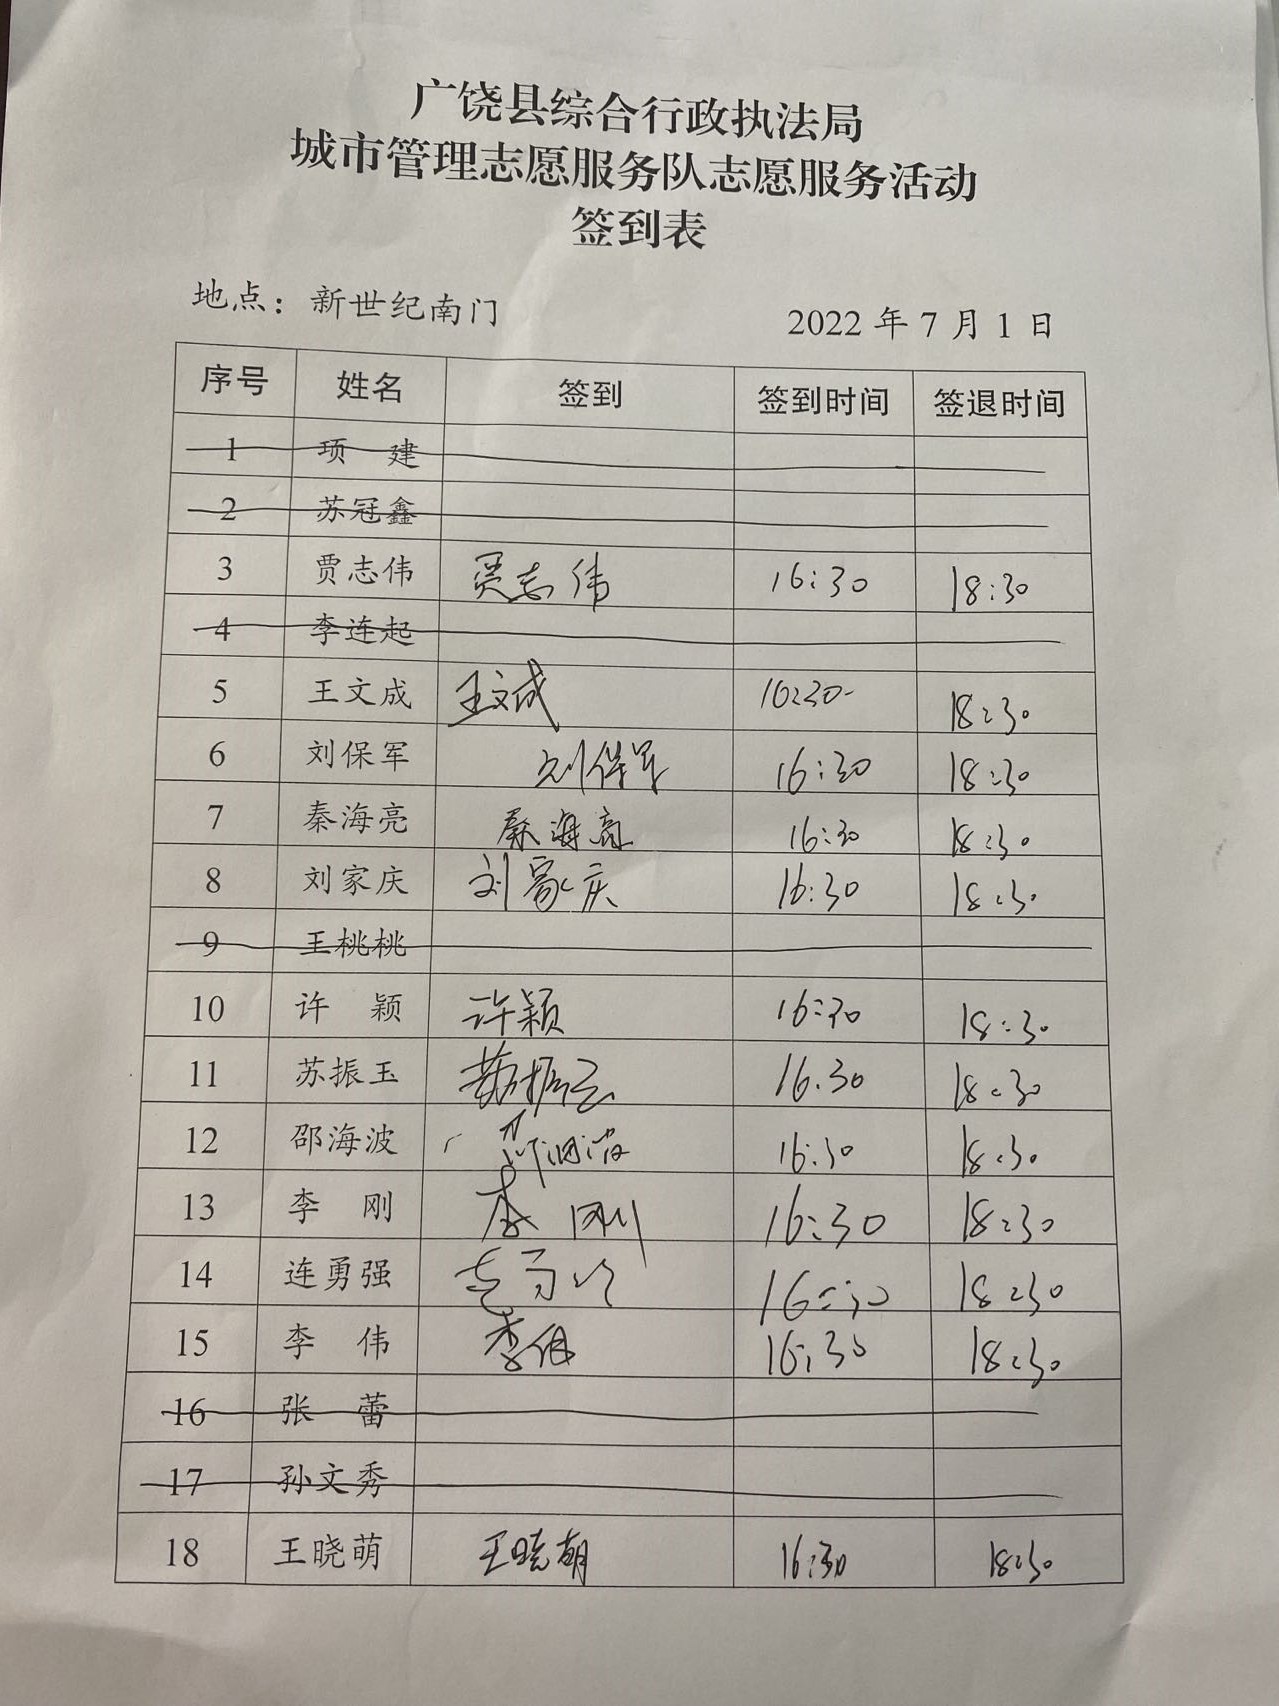 广饶县综合行政执法局
城市管理志愿服务队志愿服务活动
签到表
地点：新世纪南门 2022 年 7 月 1 日
序号 姓名 签到 签到时间 签退时间
1 项 建
2 苏冠鑫
3 贾志伟 贾志伟 16:30 18:30
4 李连起
5 王文成 王文成 16:30 18:30
6 刘保军 刘保军 16:30 18:30
7 秦海亮 秦海亮 16:30 18:30
8 刘家庆 刘家庆 16:30 18:30
9 王桃桃
10 许 颖 许颖 16:30 18:30
11 苏振玉 苏振玉 16.30 18:30
12 邵海波 16:30 18:30
13 李 刚 李刚 16:30 18:30
14 连勇强 16:30 18:30
15 李 伟 李伟 16:30 18:30
16 张 蕾
17 孙文秀
18 王晓萌 王晓萌 16:30 18:30